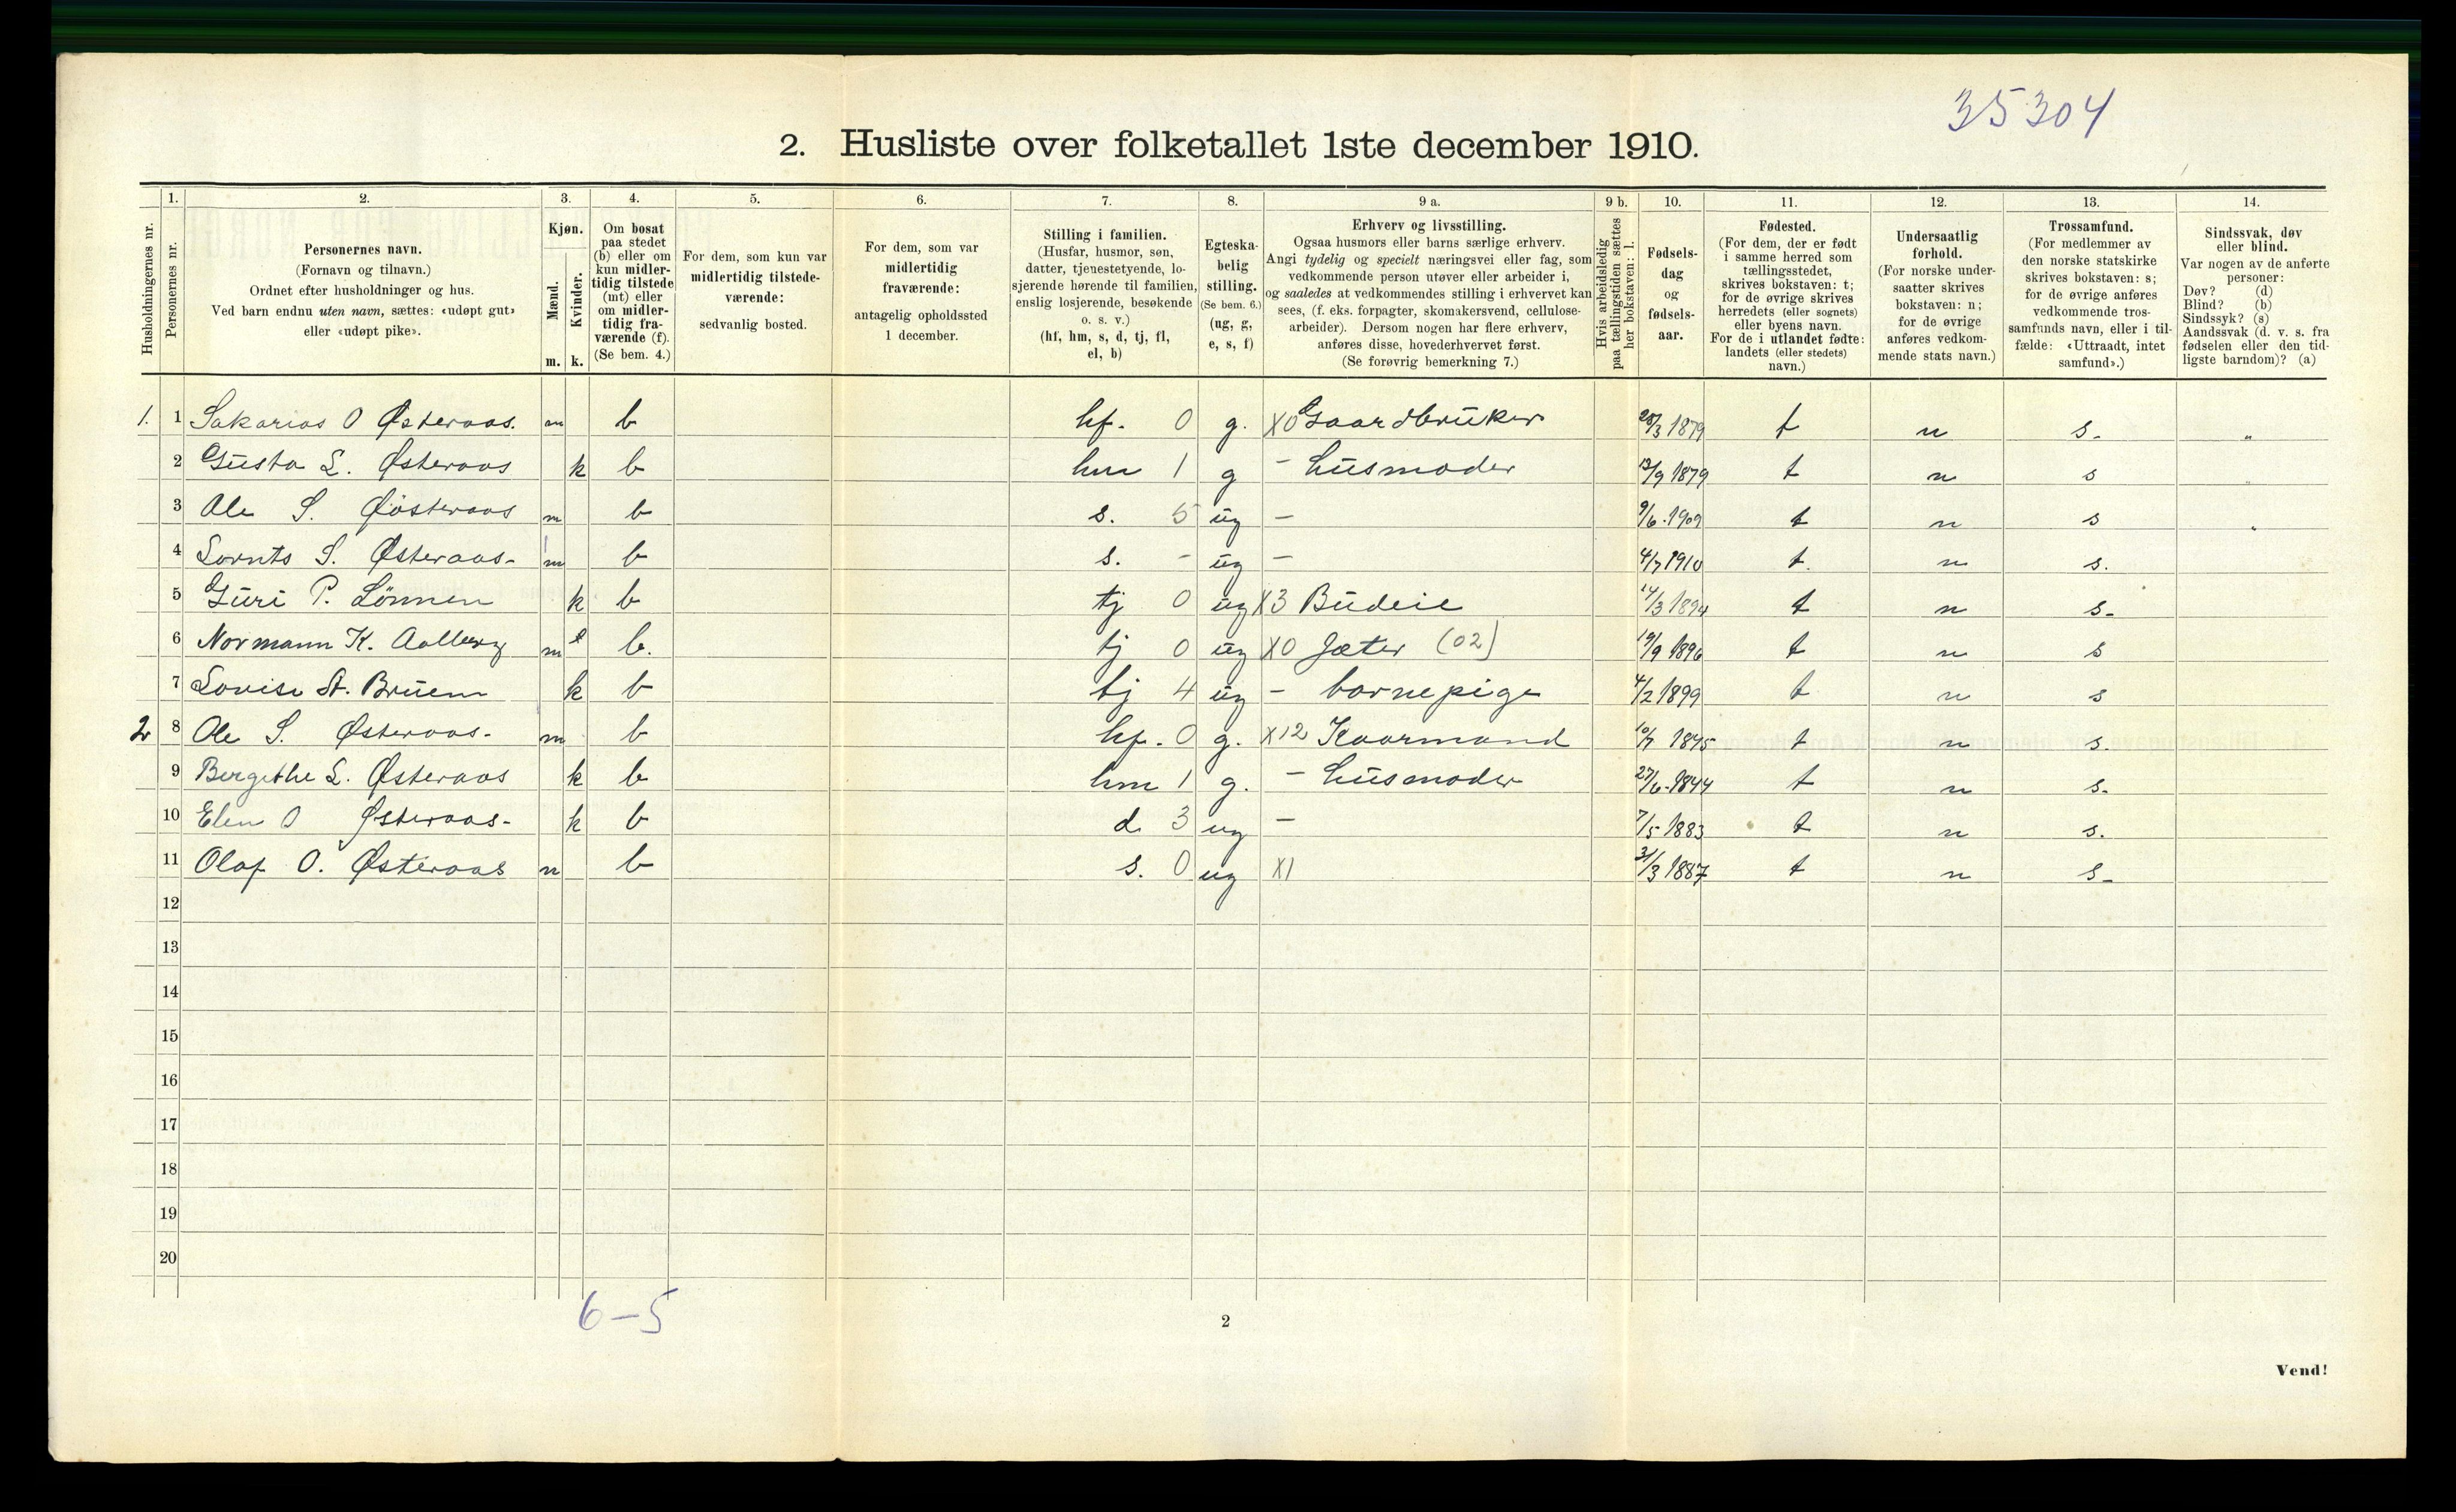 35304
2. Husliste over folketallet 1ste december 1910.
1. 2. 3. 4. 5. 6. 7. 8. 9 a. 9 b. 10. 11. 12. 13. 14.
Husholdningernes nr.
Personernes nr.
Personernes navn.
(Fornavn og tilnavn.)
Ordnet efter husholdninger og hus.
Ved barn endnu uten navn, sættes: «udøpt gut»
eller «udøpt pike».
Kjøn.
Mænd.
Kvinder.
m. k.
Om bosat
paa stedet
(b) eller om
kun midler-
tidig tilstede
(mt) eller
om midler-
tidig fra-
værende (f).
(Se bem. 4.)
For dem, som kun var
midlertidig tilstede-
værende:
sedvanlig bosted.
For dem, som var
midlertidig
fraværende:
antagelig opholdssted
1 december.
Stilling i familien.
(Husfar, husmor, søn,
datter, tjenestetyende, lo-
sjerende hørende til familien,
enslig losjerende, besøkende
o. s. v.)
(hf, hm, s, d, tj, fl,
el, b)
Egteska-
belig
stilling.
(Se bem. 6.)
(ug, g,
e, s, f)
Erhverv og livsstilling.
Ogsaa husmors eller barns særlige erhverv.
Angi tydelig og specielt næringsvei eller fag, som
vedkommende person utøver eller arbeider i,
og saaledes at vedkommendes stilling i erhvervet kan
sees, (f. eks. forpagter, skomakersvend, cellulose-
arbeider). Dersom nogen har flere erhverv,
anføres disse, hovederhvervet først.
(Se forøvrig bemerkning 7.)
Hvis arbeidsledig
paa tællingstiden sættes
her bokstaven: l.
Fødsels-
dag
og
fødsels-
aar.
Fødested.
(For dem, der er født
i samme herred som
tællingsstedet,
skrives bokstaven: t;
for de øvrige skrives
herredets (eller sognets)
eller byens navn.
For de i utlandet fødte:
landets (eller stedets)
navn.)
Undersaatlig
forhold.
(For norske under-
saatter skrives
bokstaven: n;
for de øvrige
anføres vedkom-
mende stats navn.)
Trossamfund.
(For medlemmer av
den norske statskirke
skrives bokstaven: s;
for de øvrige anføres
vedkommende tros-
samfunds navn, eller i til-
fælde: «Uttraadt, intet
samfund».)
Sindssvak, døv
eller blind.
Var nogen av de anførte
personer:
Døv? (d)
Blind? (b)
Sindssyk? (s)
Aandssvak (d. v. s. fra
fødselen eller den tid-
ligste barndom)? (a)
1. 1 Sakarias O Østeraas. m b hf. 0 g. X0 Gaardbruker 28/3 1879 t n s. "
2 Gusta L. Østeraas k b hm 1 g - husmoder 13/9 1879 t n s "
3 Ole S. Østeraas m b s. 5 ug - 9/6 1909 t n s "
4 Lornts S. Østeraas- m b s. - ug - 4/7 1910 t. n s.
5 Guri P. Lönnen k b tj 0 ug X3 Budeie 14/3 1894 t n s-
6 Normann K. Aalberg m b. tj 0 ug X0 Jæter (02) 19/9 1896 t n s
7 Lovise St. Bruem k b tj 4 ug - barnepige 4/2 1899 t n s
2 8 Ole S. Østeraas- m b hf. 0 g. X12 Kaarmand 10/7 1845 t n s.
9 Bergithe L. Østeraas k b hm 1 g. - husmoder 27/6 1844 t n s.
10 Elen O Østeraas- k b d. 3 ug - 7/5 1883 t n s.
11 Olaf O. Østeraas m b s. 0 ug X1 31/3 1887 t n s-
12
13
14
15
16
17
18
19
20
6-5
2
Vend!